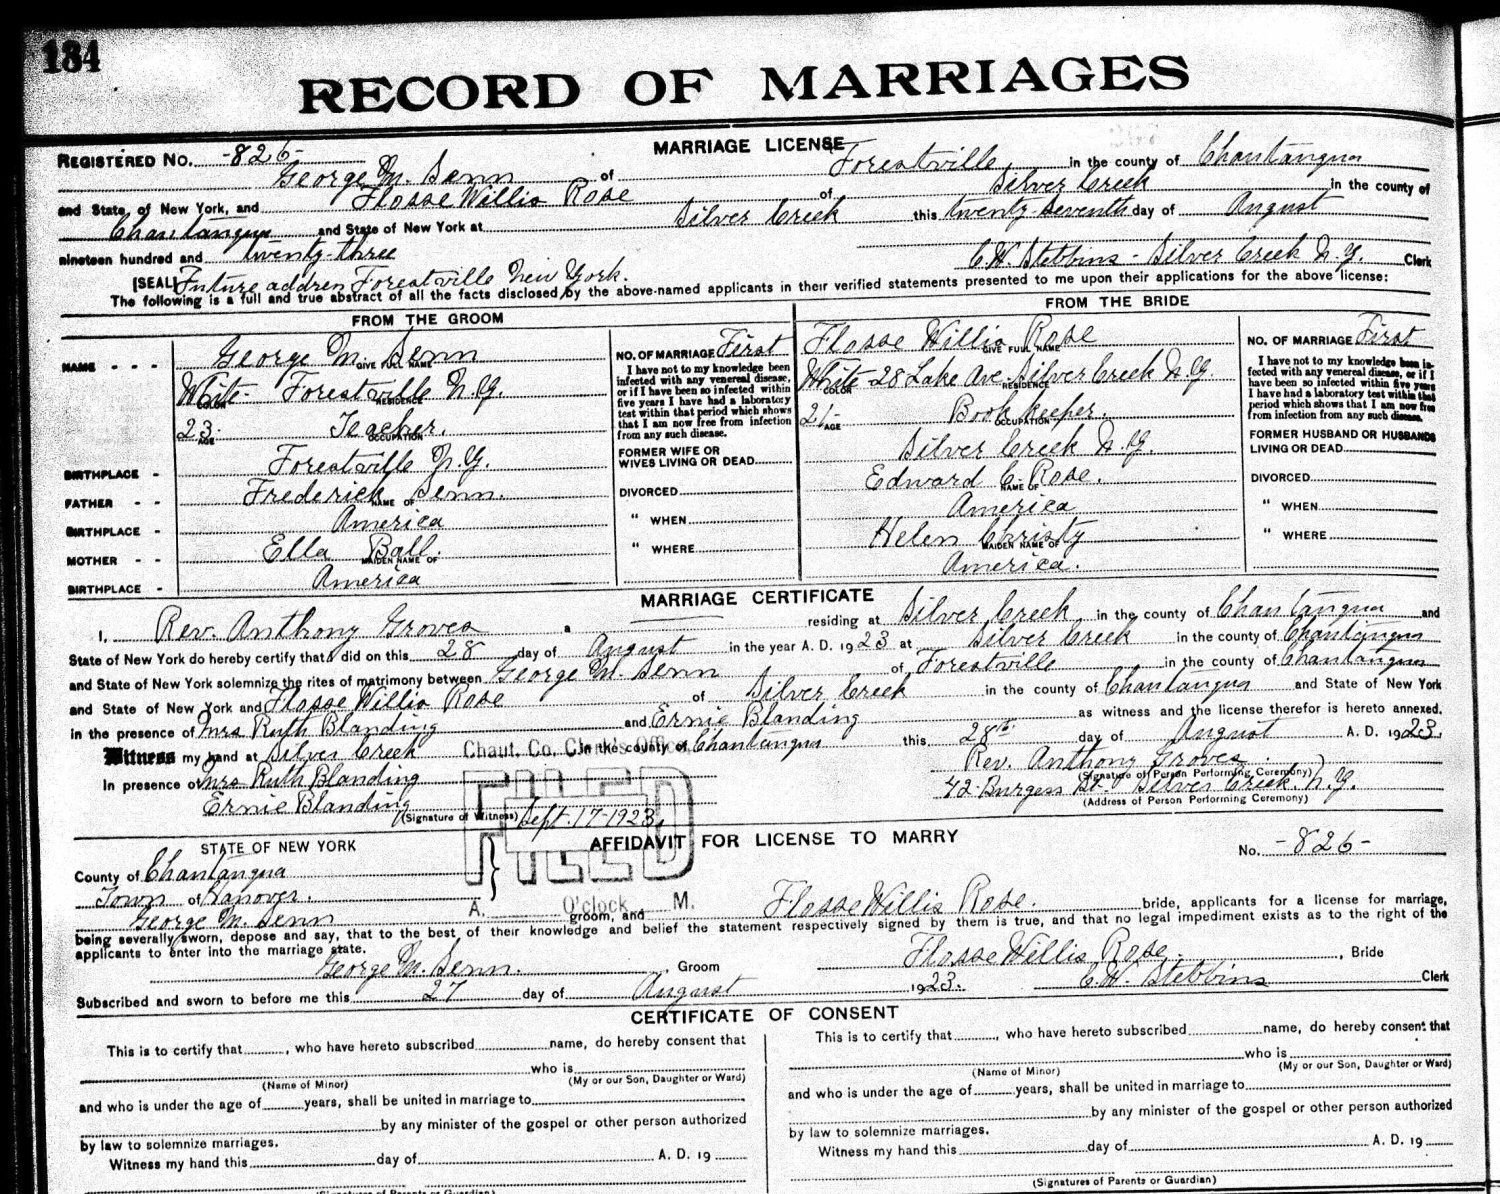 184
RECORD OF MARRIAGES
MARRIAGE LICENSE
REGISTERED No. -826-
George M. Senn of Forestville in the county of Chautauqua
and State of New York, and Flosse Willis Rose of Silver Creek in the county of
Chautauqua and State of New York at Silver Creek this twenty-seventh day of August
nineteen hundred and twenty-three
C.W. Stebbins - Silver Creek N.Y. Clerk
[SEAL] Future address Forestville New York.
The following is a full and true abstract of all the facts disclosed by the above-named applicants in their verified statements presented to me upon their applications for the above license:
FROM THE GROOM
NAME - - - George M. Senn
GIVE FULL NAME
White - Forestville N.Y.
COLOR RESIDENCE
23 Teacher.
AGE OCCUPATION
BIRTHPLACE - Forestville N.Y.
FATHER - - Frederick Senn.
NAME OF
BIRTHPLACE - America
MOTHER - - Ella Ball.
MAIDEN NAME OF
BIRTHPLACE - America
NO. OF MARRIAGE First
I have not to my knowledge been
infected with any venereal disease,
or if I have been so infected within
five years I have had a laboratory
test within that period which shows
that I am now free from infection
from any such disease.
FORMER WIFE OR
WIVES LIVING OR DEAD
DIVORCED
" WHEN
" WHERE
FROM THE BRIDE
Flosse Willis Rose
GIVE FULL NAME
White - 28 Lake Ave - Silver Creek N.Y.
COLOR RESIDENCE
21- Book keeper.
AGE OCCUPATION
Silver Creek N.Y.
Edward C. Rose.
NAME OF
America
Helen Christy
MAIDEN NAME OF
America.
NO. OF MARRIAGE First
I have not to my knowledge been in-
fected with any venereal disease, or if I
have been so infected within five years
I have had a laboratory test within that
period which shows that I am now free
from infection from any such disease.
FORMER HUSBAND OR HUSBANDS
LIVING OR DEAD
DIVORCED
" WHEN
" WHERE
MARRIAGE CERTIFICATE
I, Rev. Anthony Groves a residing at Silver Creek in the county of Chautauqua and
State of New York do hereby certify that I did on this 28 day of August in the year A. D. 1923 at Silver Creek in the county of Chautauqua
and State of New York solemnize the rites of matrimony between George M. Senn of Forestville in the county of Chautauqua
and State of New York and Flosse Willis Rose of Silver Creek in the county of Chautauqua and State of New York
in the presence of Mrs Ruth Blanding and Ernie Blanding as witness and the license therefor is hereto annexed.
Witness my hand at Silver Creek in the county of Chautauqua this 28th day of August A. D. 1923.
In presence of Mrs Ruth Blanding Rev. Anthony Groves.
(Signature of Person Performing Ceremony)
Ernie Blanding 42 Burgess St. - Silver Creek. N.Y.
(Signature of Witness) (Address of Person Performing Ceremony)
Chaut. Co. Clerk's Office
FILED
Sept. 17-1923.
A. O'clock M.
AFFIDAVIT FOR LICENSE TO MARRY
STATE OF NEW YORK
No. -826-
County of Chautauqua
Town of Hanover.
George M. Senn groom, and Flosse Willis Rose. bride, applicants for a license for marriage,
being severally sworn, depose and say, that to the best of their knowledge and belief the statement respectively signed by them is true, and that no legal impediment exists as to the right of the
applicants to enter into the marriage state.
George M. Senn. , Groom Flosse Willis Rose. , Bride
Subscribed and sworn to before me this 27 day of August 1923. C.W. Stebbins Clerk
CERTIFICATE OF CONSENT
This is to certify that , who have hereto subscribed name, do hereby consent that
who is
(Name of Minor) (My or our Son, Daughter or Ward)
and who is under the age of years, shall be united in marriage to
by any minister of the gospel or other person authorized
by law to solemnize marriages.
Witness my hand this day of A. D. 19
(Signatures of Parents or Guardian)
This is to certify that , who have hereto subscribed name, do hereby consent that
who is
(Name of Minor) (My or our Son, Daughter or Ward)
and who is under the age of years, shall be united in marriage to
by any minister of the gospel or other person authorized
by law to solemnize marriages.
Witness my hand this day of A. D. 19
(Signatures of Parents or Guardian)